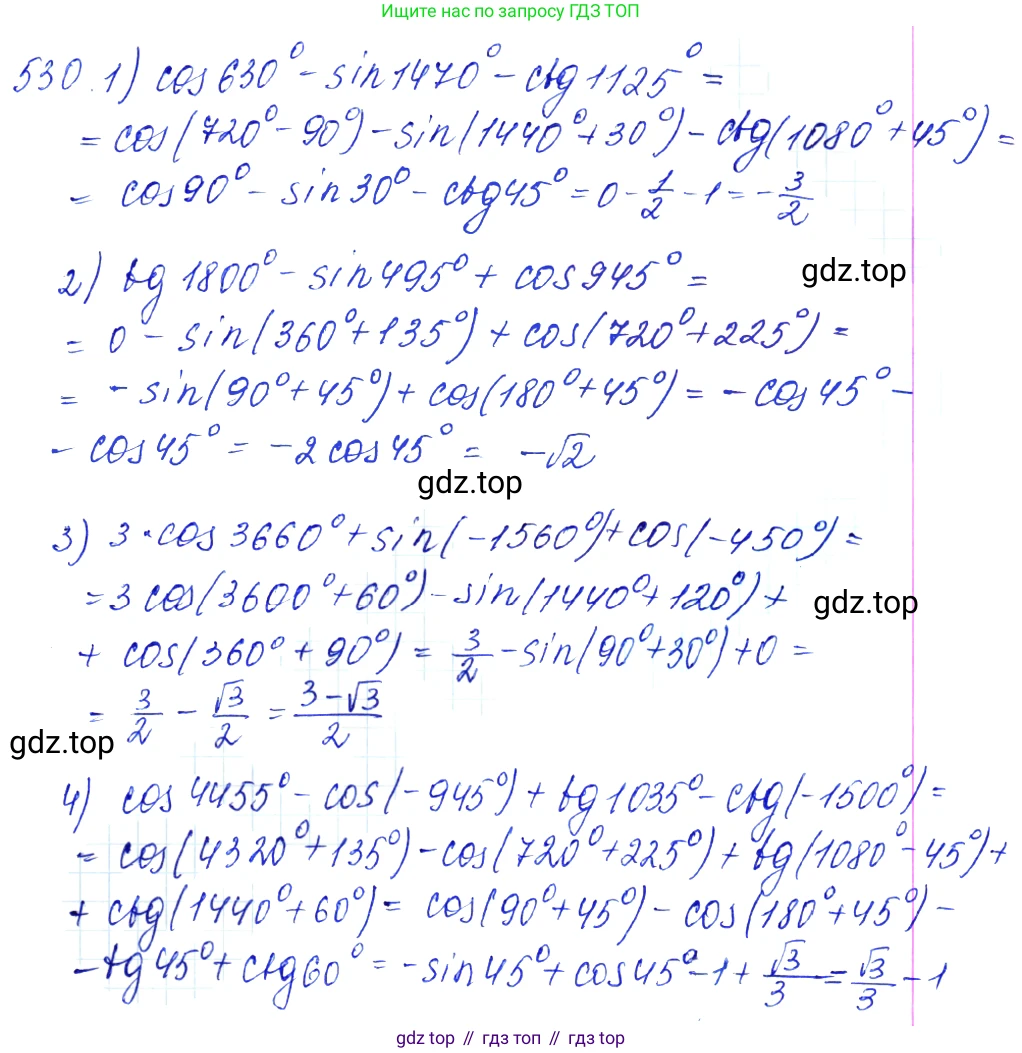 Ищите нас по запросу ГДЗ ТОП
530. 1) cos 630° - sin 1470° - ctg 1125° =
= cos(720° - 90°) - sin(1440° + 30°) - ctg(1080° + 45°) =
= cos 90° - sin 30° - ctg 45° = 0 - 1/2 - 1 = - 3/2
2) tg 1800° - sin 495° + cos 945° =
gdz.top
= 0 - sin(360° + 135°) + cos(720° + 225°) =
= - sin(90° + 45°) + cos(180° + 45°) = - cos 45° -
- cos 45° = -2 cos 45° = -√2
gdz.top
3) 3 · cos 3660° + sin(-1560°) + cos(-450°) =
= 3 cos(3600° + 60°) - sin(1440° + 120°) +
gdz.top
+ cos(360° + 90°) = 3/2 - sin(90° + 30°) + 0 =
= 3/2 - √3/2 = (3 - √3)/2
gdz.top
4) cos 4455° - cos(-945°) + tg 1035° - ctg(-1500°) =
= cos(4320° + 135°) - cos(720° + 225°) + tg(1080° - 45°) +
+ ctg(1440° + 60°) = cos(90° + 45°) - cos(180° + 45°) -
- tg 45° + ctg 60° = - sin 45° + cos 45° - 1 + √3/3 = √3/3 - 1
gdz.top // гдз топ // gdz.top